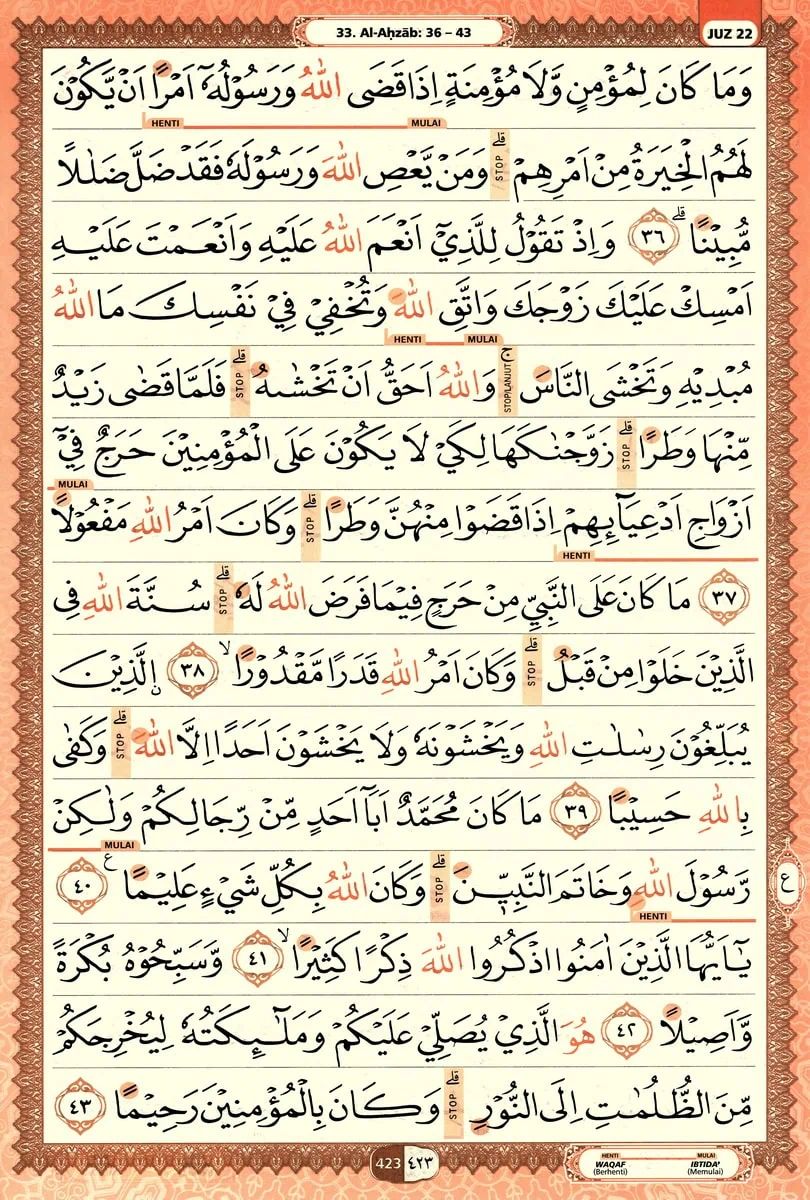 33. Al-Aḥzāb: 36 – 43
JUZ 22
وَمَا كَانَ لِمُؤْمِنٍ وَّلَا مُؤْمِنَةٍ اِذَا قَضَى اللّٰهُ وَرَسُوْلُهٗٓ اَمْرًا اَنْ يَّكُوْنَ
HENTI MULAI
لَهُمُ الْخِيَرَةُ مِنْ اَمْرِهِمْ ۗ وَمَنْ يَّعْصِ اللّٰهَ وَرَسُوْلَهٗ فَقَدْ ضَلَّ ضَلٰلًا
STOP
مُّبِيْنًاۗ ٣٦ وَاِذْ تَقُوْلُ لِلَّذِيْٓ اَنْعَمَ اللّٰهُ عَلَيْهِ وَاَنْعَمْتَ عَلَيْهِ
اَمْسِكْ عَلَيْكَ زَوْجَكَ وَاتَّقِ اللّٰهَ وَتُخْفِيْ فِيْ نَفْسِكَ مَا اللّٰهُ
HENTI MULAI
مُبْدِيْهِ وَتَخْشَى النَّاسَۚ وَاللّٰهُ اَحَقُّ اَنْ تَخْشٰىهُ ۗ فَلَمَّا قَضٰى زَيْدٌ
STOP/LANJUT STOP
مِّنْهَا وَطَرًاۗ زَوَّجْنٰكَهَا لِكَيْ لَا يَكُوْنَ عَلَى الْمُؤْمِنِيْنَ حَرَجٌ فِيْٓ
STOP
MULAI
اَزْوَاجِ اَدْعِيَاۤىِٕهِمْ اِذَا قَضَوْا مِنْهُنَّ وَطَرًاۗ وَكَانَ اَمْرُ اللّٰهِ مَفْعُوْلًا
STOP
HENTI
٣٧ مَا كَانَ عَلَى النَّبِيِّ مِنْ حَرَجٍ فِيْمَا فَرَضَ اللّٰهُ لَهٗ ۗ سُنَّةَ اللّٰهِ فِى
STOP
الَّذِيْنَ خَلَوْا مِنْ قَبْلُ ۗ وَكَانَ اَمْرُ اللّٰهِ قَدَرًا مَّقْدُوْرًاۙ ٣٨ ۨالَّذِيْنَ
STOP
يُبَلِّغُوْنَ رِسٰلٰتِ اللّٰهِ وَيَخْشَوْنَهٗ وَلَا يَخْشَوْنَ اَحَدًا اِلَّا اللّٰهَ ۗ وَكَفٰى
STOP
بِاللّٰهِ حَسِيْبًا ٣٩ مَا كَانَ مُحَمَّدٌ اَبَآ اَحَدٍ مِّنْ رِّجَالِكُمْ وَلٰكِنْ
MULAI
رَّسُوْلَ اللّٰهِ وَخَاتَمَ النَّبِيّٖنَۗ وَكَانَ اللّٰهُ بِكُلِّ شَيْءٍ عَلِيْمًا ࣖ ٤٠
STOP
HENTI
ع
يٰٓاَيُّهَا الَّذِيْنَ اٰمَنُوا اذْكُرُوا اللّٰهَ ذِكْرًا كَثِيْرًاۙ ٤١ وَّسَبِّحُوْهُ بُكْرَةً
وَّاَصِيْلًا ٤٢ هُوَ الَّذِيْ يُصَلِّيْ عَلَيْكُمْ وَمَلٰۤىِٕكَتُهٗ لِيُخْرِجَكُمْ
مِّنَ الظُّلُمٰتِ اِلَى النُّوْرِۗ وَكَانَ بِالْمُؤْمِنِيْنَ رَحِيْمًا ٤٣
STOP
423 ٤٢٣
HENTI MULAI
WAQAF IBTIDA'
(Berhenti) (Memulai)